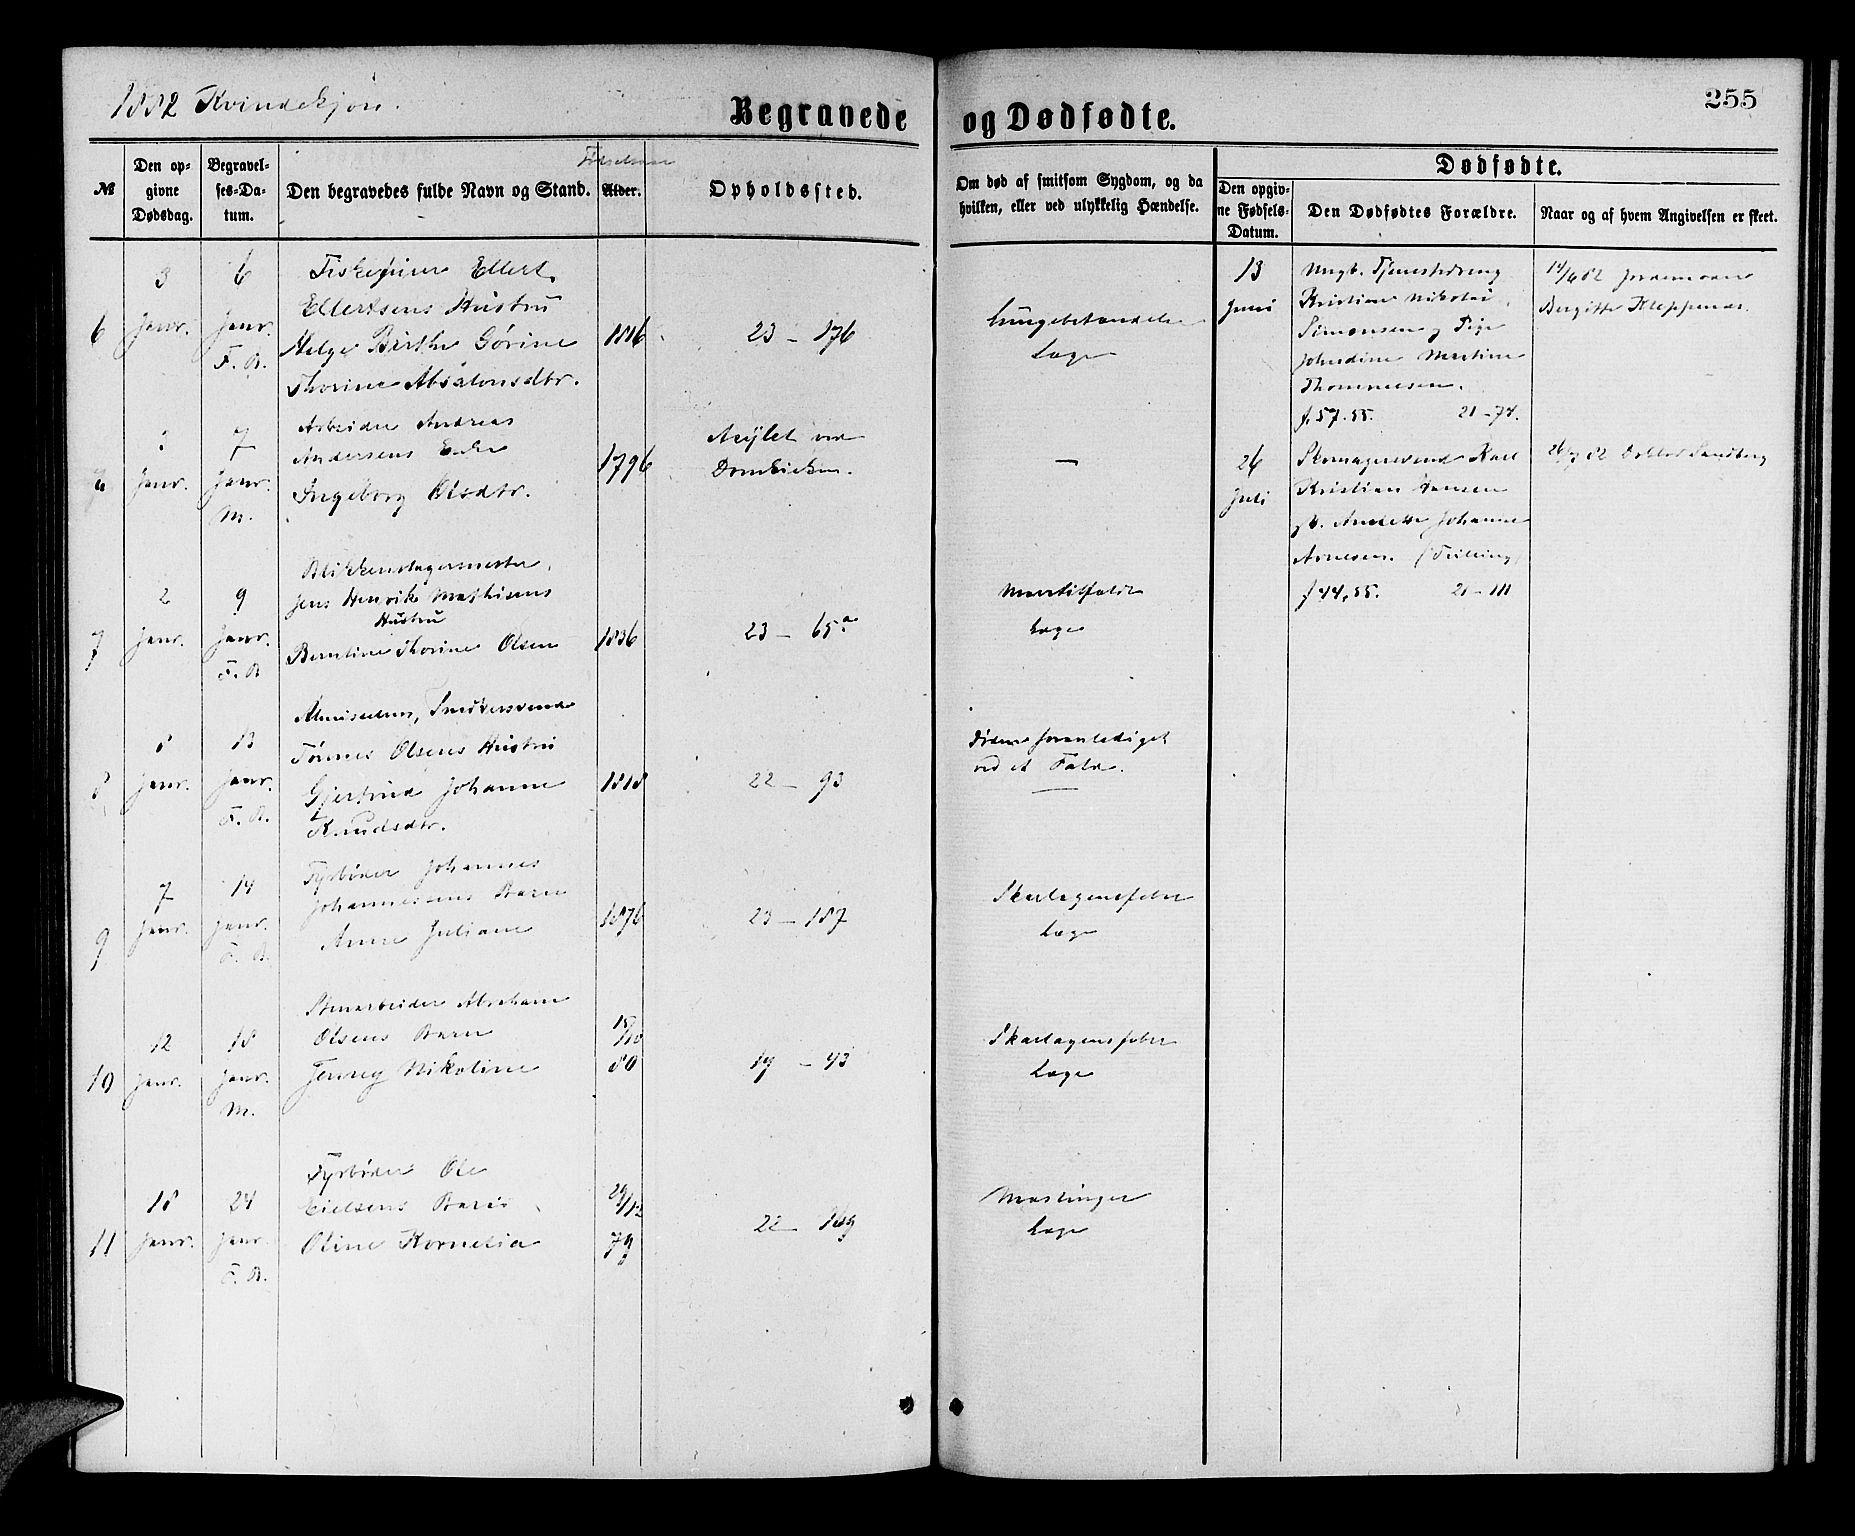 1882 Kvindekjøn.
Begravede og Dødfødte.
255
№
Den opgivne Dødsdag.
Begravelses-Datum.
Den begravedes fulde Navn og Stand.
Alder.
Opholdssted.
Om død af smitsom Sygdom, og da hvilken, eller ved ulykkelig Hændelse.
Dødfødte.
Den opgivne Fødsels-Datum.
Den Dødfødtes Forældre.
Naar og af hvem Angivelsen er skeet.
6
3 Janr.
6 Janr. F. B.
Ellert
Ellertsens Hustru
Helge Birthe Gørine
Thorine Absalonsdtr.
1816
23 – 176
Lungebetændelse
Læge
Janr.
7 Janr. M.
Arbeider Andreas
Andersens Enke
Ingeborg Olsdtr.
1796
Asylet ved
Domkirken.
—
7
2 Janr.
9 Janr. F. B.
Blikkenslagermester
Jens Henrik Mathisens
Hustru
Berntine Thorine Olsen
1836
23 – 65a
Læge
8
8 Janr.
13 Janr. F. B.
Tønnes Olsens Hustru
Gjertrud Johanne
Knudsdtr.
1818
22 – 93
Døden foranlediget
ved et Fald.
9
7 Janr.
14 Janr. F. B.
Fyrbøder Johannes
Johannessens Barn
Anne Juliane
1876
23 – 187
Skarlagensfeber
Læge
10
12 Janr.
18 Janr. M.
Stenarbeider Abraham
Olsens Barn
Jenny Nikoline
15/10 80
19 – 43
Skarlagensfeber
Læge
11
18 Janr.
24 Janr. F. B.
Fyrbøder Ole
Eielsens Barn
Oline Kornelia
29/12 79
22 – 169
Mæslinger
Læge
13 Juni
Ungk. Tjenestedreng
Kristian Nikolai
Simonsen og Pige
Johndine Martine
Thommesen.
f. 57. 55. 21 – 74.
14/6 82 Jordemoder
Bergitte Kleppenæs.
26 Juli
Skomagersvend Karl
Kristian Hansen
gb. Anette Johanne
Arnesen. (Tvilling)
f 44, 55. 21 – 111
26/7 82 Doktor Sandberg